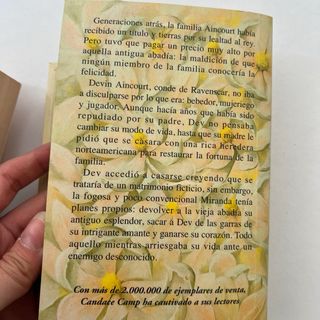 Generaciones atrás, la familia Aincourt había
recibido un título y tierras por su lealtad al rey.
Pero tuvo que pagar un precio muy alto por
aquella antigua abadía: la maldición de que
ningún miembro de la familia conocería la
felicidad.
Devin Aincourt, conde de Ravenscar, no iba
a disculparse por lo que era: bebedor, mujeriego
y jugador. Aunque hacía años que había sido
repudiado por su padre, Dev no pensaba
cambiar su modo de vida, hasta que su madre le
pidió que se casara con una rica heredera
norteamericana para restaurar la fortuna de la
familia.
Dev accedió a casarse creyendo que se
trataría de un matrimonio ficticio, sin embargo,
la fogosa y poco convencional Miranda tenía
planes propios: devolver a la vieja abadía su
antiguo esplendor, sacar á Dev de las garras de
su intrigante amante y ganarse su corazón. Todo
aquello mientras arriesgaba su vida ante un
enemigo desconocido.
Con más de 2.000.000 de ejemplares de venta,
Candace Camp ha cautivado a sus lectores.